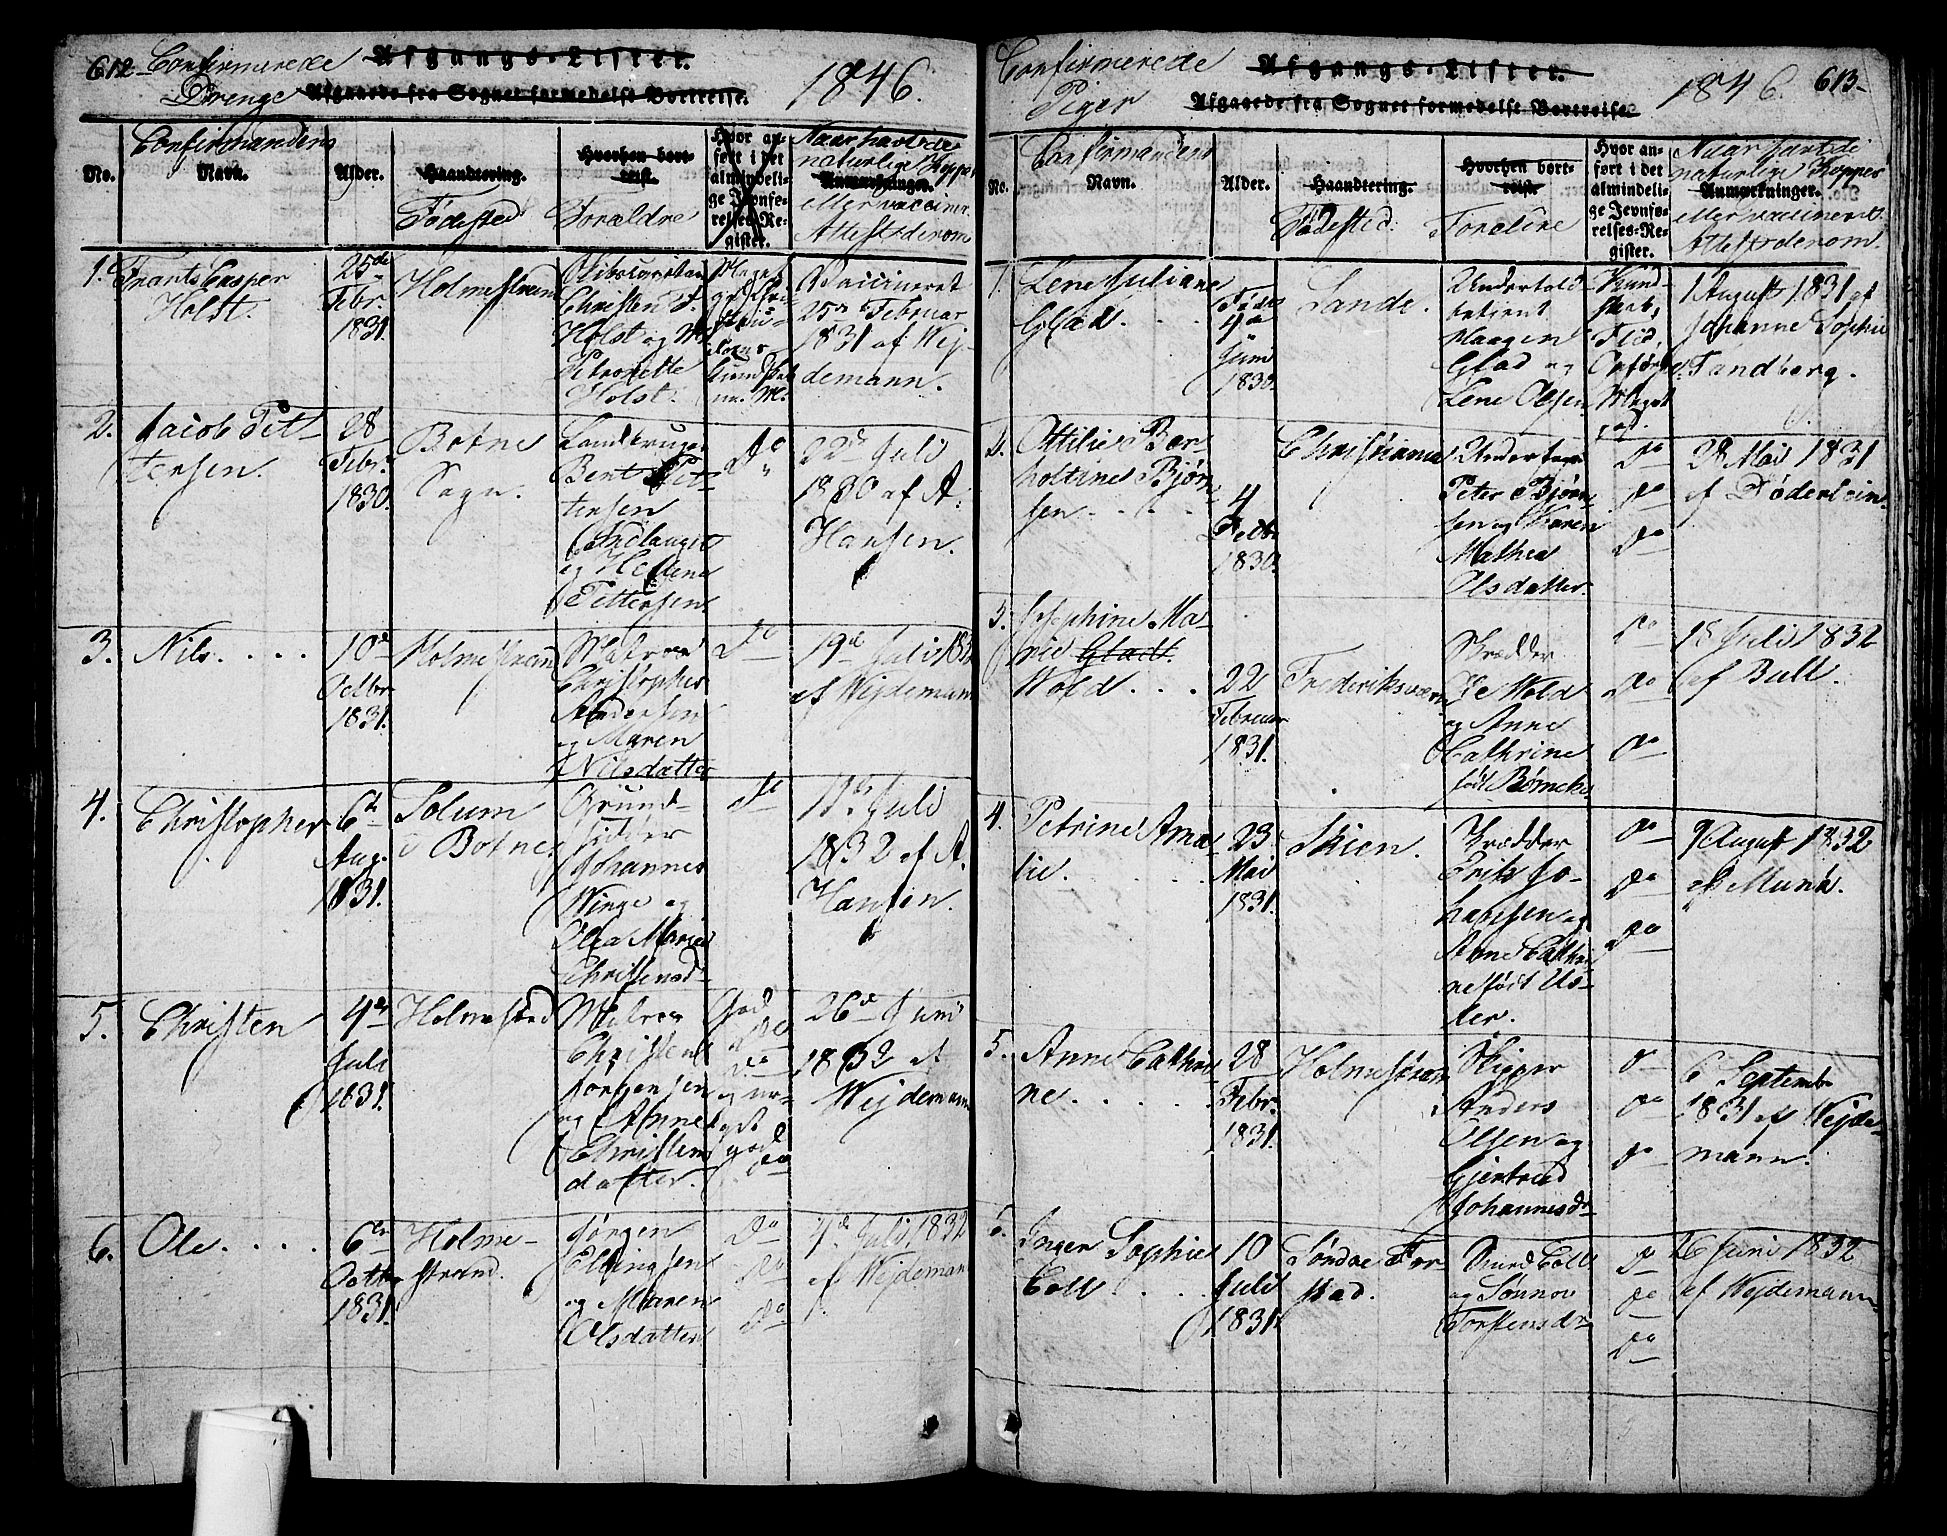 612
Confirmerede
Drenge
Afgangs-Lister.
Afgaaede fra Sognet formedelst Bortreise.
1846.
No.
Confirmandens
Navn.
Alder.
Haandtering.
Fødested
Hvorhen bort-
reist.
Forældre
Hvor an-
ført i det
almindeli-
ge Jevnfø-
relses-Re-
gister.
Naar havt de
naturlige Kopper
Anmærkninger.
eller vaccineret
Attest derom
1. Frants Casper
Holst.
25de
Febr.
1831.
Holmestrand
Christen F.
Holst og
Petronelle
Holst.
Meget
god Chri-
Kundskab
Vaccineret
25de Februar
1831 af Wej-
demann.
2. Jacob Pet-
tersen.
28
Febr.
1830.
Botne
Sogn.
Landbruger
Bent Pet-
tersen
og Hellene
Pettersen
Do
22de Juli
1830 af A.
Hansen.
3. Nils. . . . .
10de
Octbr
1831.
Holmestrand
Matros
Christopher
Andersen
og Maren
Nilsdatter
Do
19de Juli 183
af Wejdemann
4. Christopher
6te
Aug.
1831.
Solum
i Botne.
Grund-
sidder
Johannes
Winge og
Olea Marie
Christensd
Do
Juli
1832 af A.
Hansen.
5. Christen
4de
Juli
1831.
Holmestrand
Matros
Christen
Jørgensen
og Anne
Christens
datter.
God
Do
Do
og me-
get
god
Do
26de Juni
1832 af
Wejdemann
6. Ole. . . . .
6te
Octbr
1831.
Holme-
strand.
Jørgen
Ellingsen
og Maren
Olsdatter
Do
Do
Do
4de Juli 1832
af Wejdemann
Confirmerede
Piger
Afgangs-Lister.
Afgaaede fra Sognet formedelst Bortreise.
1846.
613.
No.
Confirmandens
Navn.
Alder.
Haandtering.
Fødested.
Hvorhen bort-
reist
Forældre
Hvor an-
ført i det
almindeli-
ge Jevnfø-
relses-Re-
gister.
Naar havt de
naturlige Kopper
Anmærkninger.
eller vaccineret
Attest derom.
1. Lene Juliane
Glad. . .
Født
4de
Juni
1830.
Sande.
Undertold-
betient
Haagen
Glad og
Lene Olsen
Kund-
skab,
Flid,
Opførsel
Meget
god.
1 August 1831 af
Johanne Sophie
Tandberg.
2. Ottilie Ber-
holtine Bjørn-
sen. . . .
4
Febr
1830.
Christiania
Peter Bjørn-
sen og Karen
Mathea
Olsdatter.
Do
Do
Do
28 Mai 1831
af Døderlein.
3. Josephine Ma-
rie Gladt.
Wold . . .
22
Februar
1831.
Frederiksværn
Skrædder
Wold
og Anne
Cathrine
født Børneke.
Do
Do
Do
18 Juli 1832
af Bull.
4. Petrine Ama-
lie.
23
Mai
1831.
Skien.
Skrædder
Erik Jo-
hansen og
Anne Cathri-
ne født Us-
ter.
Do
Do
Do
9 August 1832
af Munk.
5. Anne Cathri-
ne. . . . .
28
Febr.
1831.
Holmestrand
Skipper
Anders
Olsen og
Gjertrud
Johannesd
Do
Do
Do
6 Septembr
1831 af Wejde-
mann.
6. Inger Sophie
Coll . . .
10
Juli
1831.
Søndre For
stad.
Coll
og Sønnov
Torstensdr
Do
Do
Do
26 Juni 1832
af Wejdemann